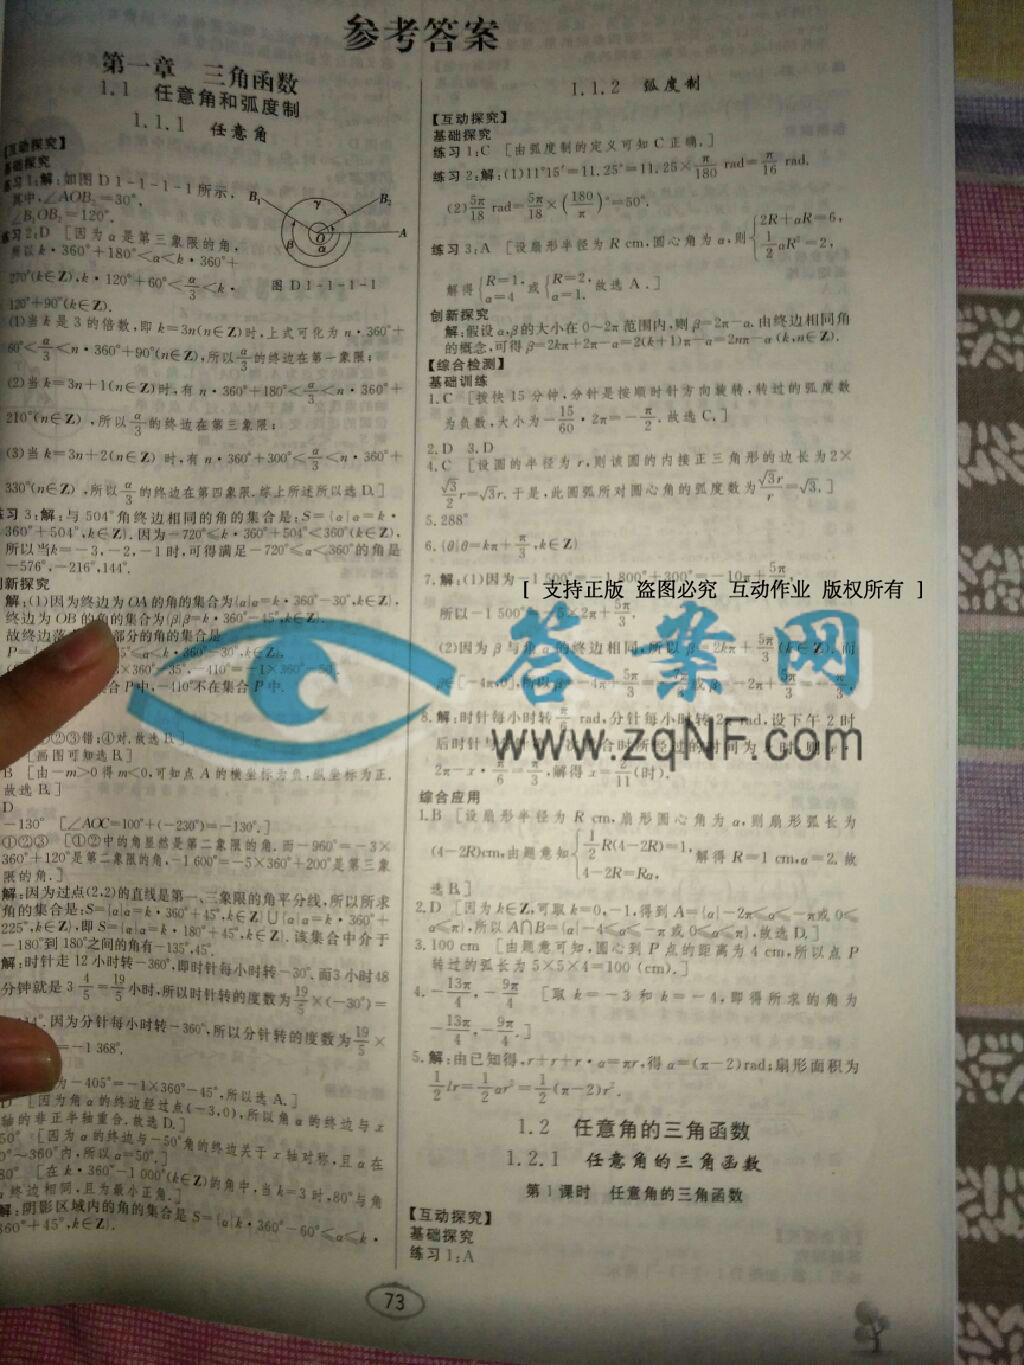 参考答案
第一章 三角函数
1.1 任意角和弧度制
1.1.1 任意角
【互动探究】
基础探究
练习1:解:如图D1-1-1-1所示.
其中,∠AOB₂=30°,
∠B₁OB₂=120°.
B₁ γ B₂
β O α A
图D1-1-1-1
练习2:D [因为α是第三象限的角,
所以k·360°+180°<α<k·360°+
270°(k∈Z),k·120°+60°<α/3<k·
120°+90°(k∈Z).
(1)当k是3的倍数,即k=3n(n∈Z)时,上式可化为n·360°+
60°<α/3<n·360°+90°(n∈Z),所以α/3的终边在第一象限;
(2)当k=3n+1(n∈Z)时,有n·360°+180°<α/3<n·360°+
210°(n∈Z),所以α/3的终边在第三象限;
(3)当k=3n+2(n∈Z)时,有n·360°+300°<α/3<n·360°+
330°(n∈Z),所以α/3的终边在第四象限.综上所述所以选D.]
练习3:解:与504°角终边相同的角的集合是:S={α|α=k·
360°+504°,k∈Z}.因为-720°≤k·360°+504°<360°(k∈Z),
所以当k=-3,-2,-1时,可得满足-720°≤α<360°的角是
-576°,-216°,144°.
创新探究
解:(1)因为终边为OA的角的集合为{α|α=k·360°-30°,k∈Z},
终边为OB的角的集合为
故终边落 部分的角的集合是
集合P中,-410°不在集合P中.
①②③错;④对.故选B.]
[画图可知选B.]
B [由-m>0得m<0,可知点A的横坐标为负,纵坐标为正.
故选B.]
D
-130° [∠AOC=100°+(-230°)=-130°.]
①②③ [①②中的角显然是第二象限的角.而-960°=-3×
360°+120°是第二象限的角,-1 600°=-5×360°+200°是第三象
限的角.]
解:因为过点(2,2)的直线是第一、三象限的角平分线,所以所求
角的集合是:S={α|α=k·360°+45°,k∈Z}∪{α|α=k·360°+
225°,k∈Z},即S={α|α=k·180°+45°,k∈Z}.该集合中介于
-180°到180°之间的角有-135°,45°.
解:时针走12小时转-360°,即时针每小时转-30°.而3小时48
分钟就是3 4/5=19/5小时,所以时针转的度数为19/5×(-30°)=
因为分针每小时转-360°,所以分针转的度数为19/5×
=-1 368°.
为-405°=-1×360°-45°,所以选A.]
D [因为角α的终边经过点(-3,0),所以角α的终边与x
轴的非正半轴重合.故选D.]
50° [因为α的终边与-50°角的终边关于x轴对称,且α在
0°~360°内,所以α=50°.]
80° [在k·360°-1 000°(k∈Z)的角中,当k=3时,80°与角
终边相同,且为最小正角.]
解:阴影区域内的角的集合是S={α|k·360°-60°≤α≤k·
360°+45°,k∈Z}.
1.1.2 弧度制
【互动探究】
基础探究
练习1:C [由弧度制的定义可知C正确.]
练习2:解:(1)11°15′=11.25°=11.25×π/180 rad=π/16 rad.
(2)5π/18 rad=5π/18×(180/π)°=50°.
练习3:A [设扇形半径为R cm,圆心角为α,则{2R+αR=6, 1/2αR²=2,
解得{R=1, α=4 或{R=2, α=1. 故选A.]
创新探究
解:假设α,β的大小在0~2π范围内,则β=2π-α.由终边相同角
的概念,可得β=2kπ+2π-α=2(k+1)π-α=2nπ-α(k,n∈Z).
【综合检测】
基础训练
1.C [拨快15分钟,分针是按顺时针方向旋转,转过的弧度数
为负数,大小为-15/60·2π=-π/2.故选C.]
2.D 3.D
4.C [设圆的半径为r,则该圆的内接正三角形的边长为2×
√3/2r=√3r.于是,此圆弧所对圆心角的弧度数为√3r/r=√3.]
5.288°
6.{θ|θ=kπ+π/3,k∈Z}
7.解:(1)因为-1 500°=-1 800°+300°=-10π+5π/3,
[ 支持正版 盗图必究 互动作业 版权所有 ]
所以-1 500°=-5×2π+5π/3.
(2)因为β与角α的终边相同,所以β=2kπ+5π/3(k∈Z).而
答案网
www.zqNF.com
8.解:时针每小时转π/6 rad,分针每小时转2π rad,设下午2时
2π-x·π/6=π/3,解得x=2/11(时).
综合应用
1.B [设扇形半径为R cm,扇形圆心角为α,则扇形弧长为
(4-2R)cm,由题意知{1/2R(4-2R)=1, 4-2R=Rα, 解得R=1 cm,α=2.故
选B.]
2.D [因为k∈Z,可取k=0,-1,得到A={α|-2π≤α≤-π或0≤
α≤π},所以A∩B={α|-4≤α≤-π或0≤α≤π},故选D.]
3.100 cm [由题意可知,圆心到P点的距离为4 cm,所以点P
转过的弧长为5×5×4=100(cm).]
4.-13π/4,-9π/4 [取k=-3和k=-4,即得所求的角为
-13π/4,-9π/4.]
5.解:由已知得,r+r+r·α=πr,得α=(π-2)rad;扇形面积为
1/2lr=1/2αr²=1/2(π-2)r².
1.2 任意角的三角函数
1.2.1 任意角的三角函数
第1课时 任意角的三角函数
【互动探究】
基础探究
练习1:A
73